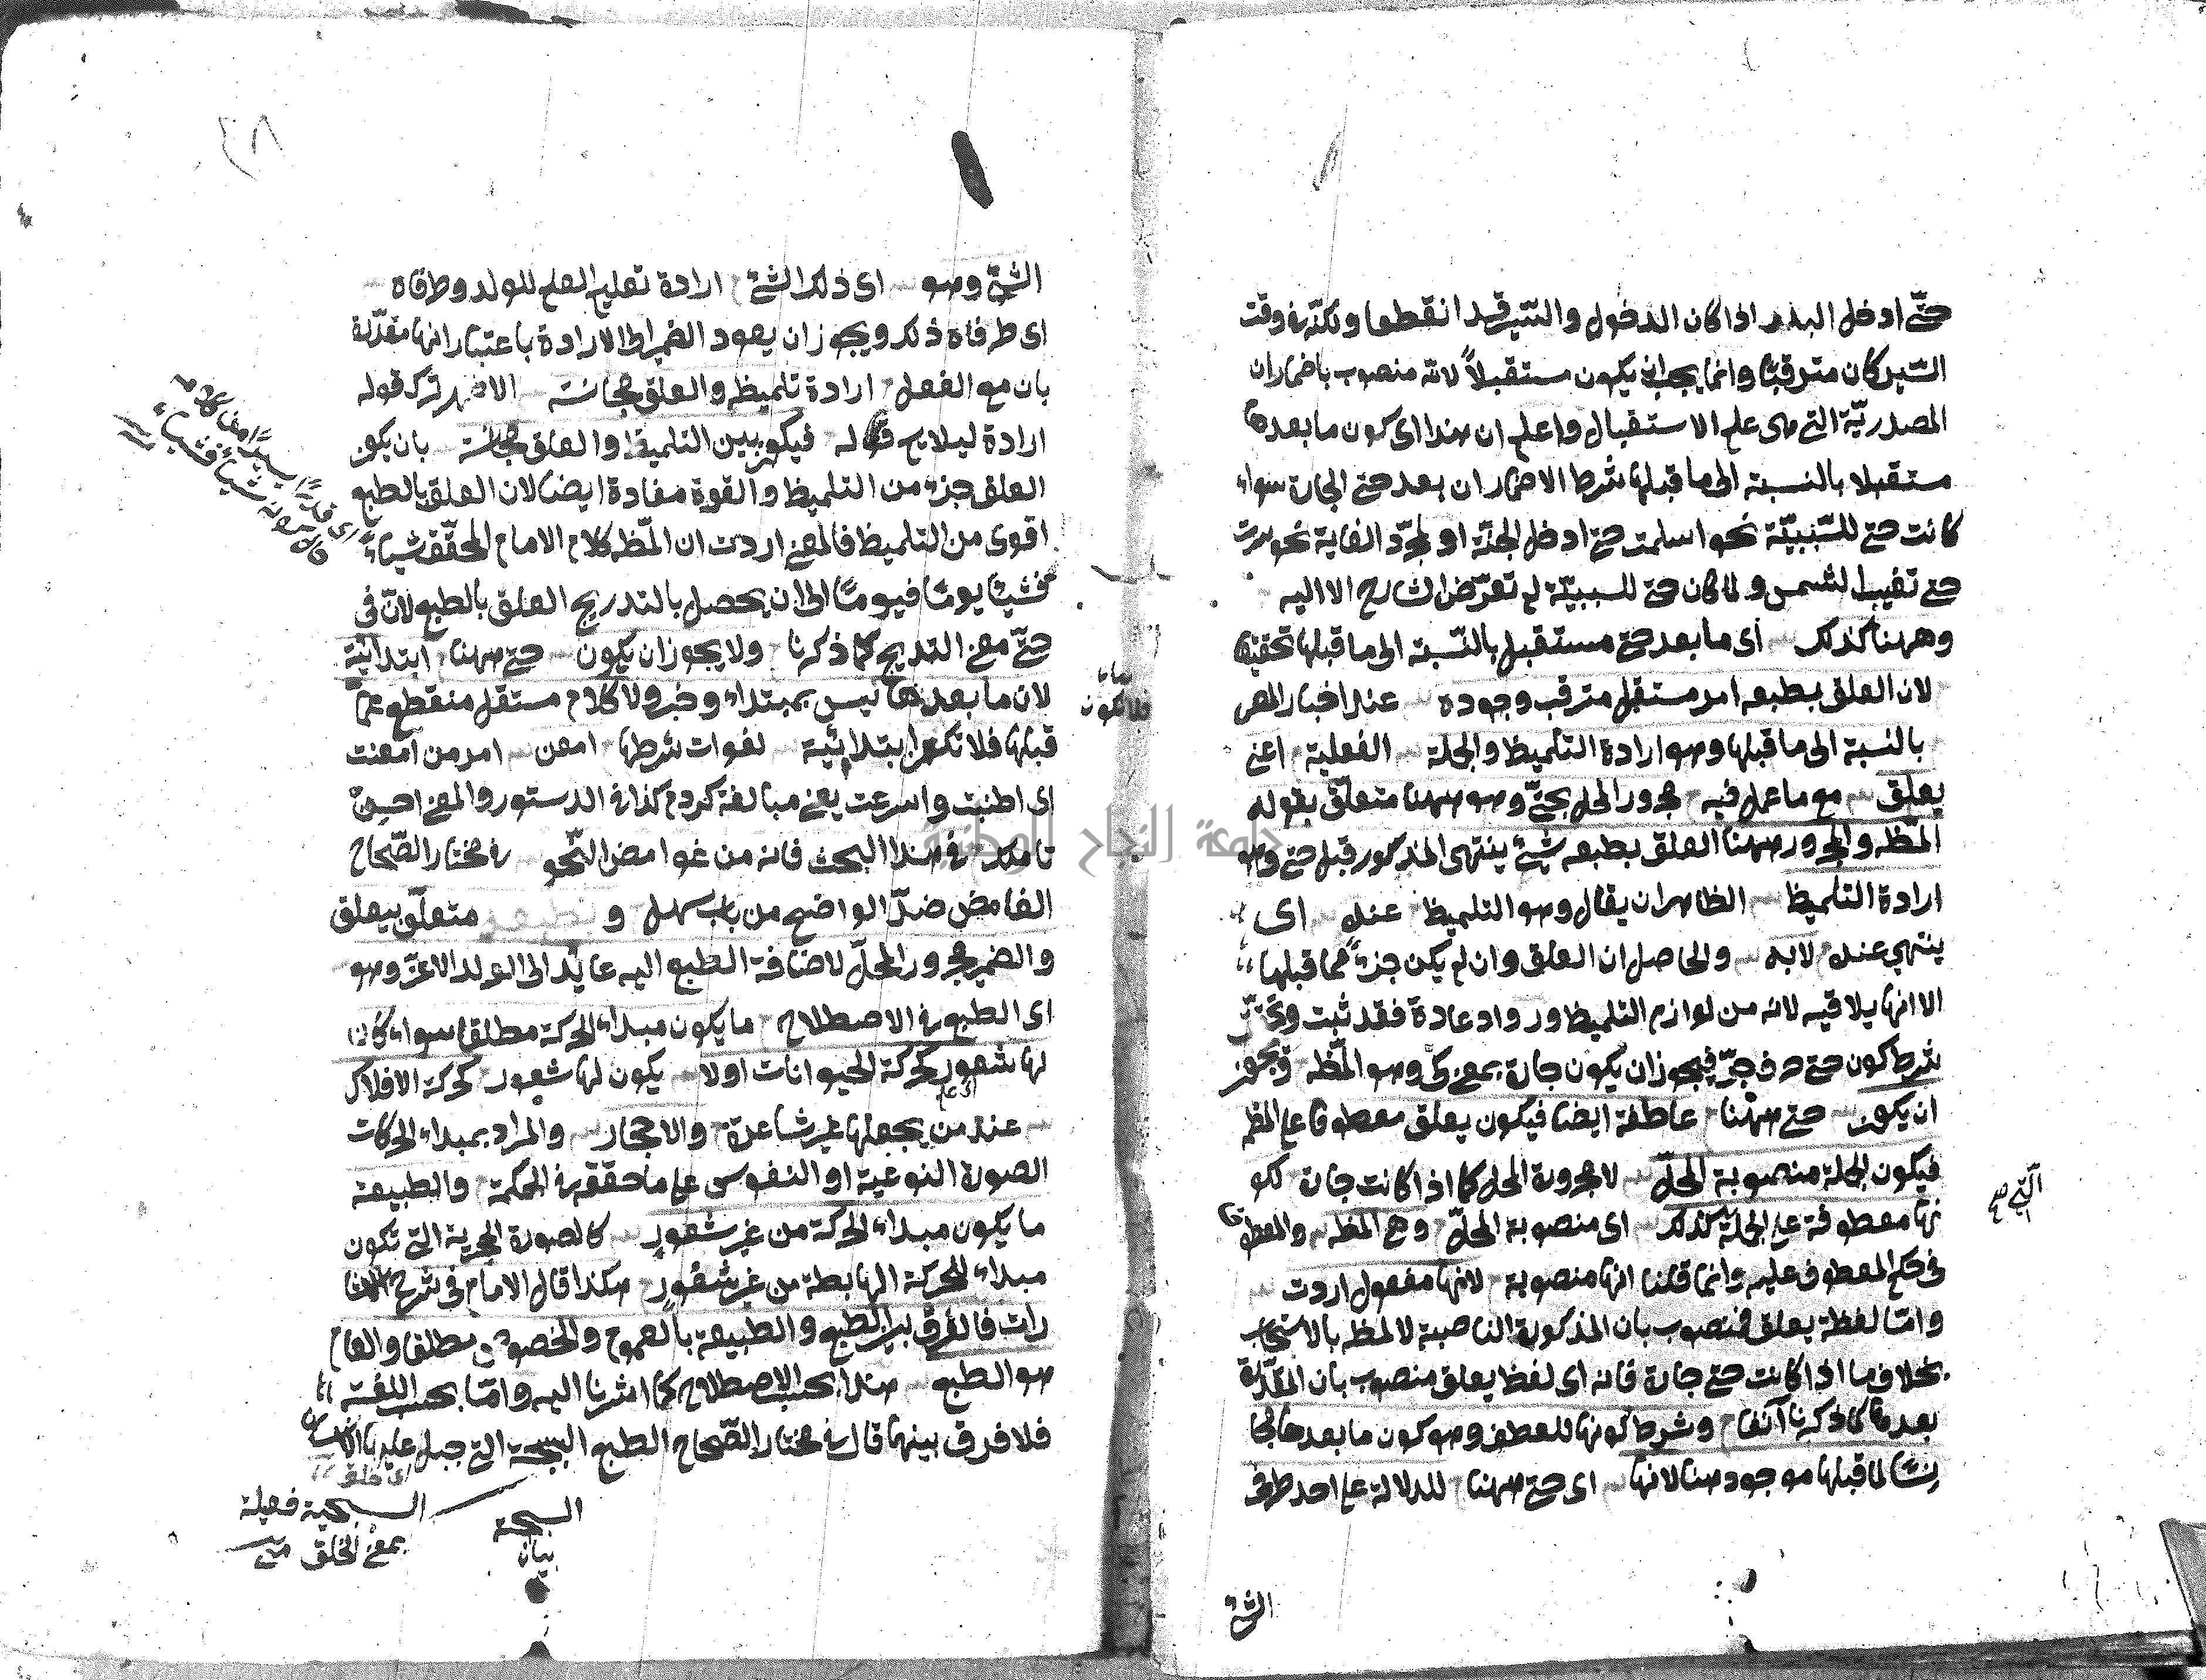 حتّى ادخل البلد اذا كان الدخول والسّير قد انقطعا ولكنّه فى وقت
السّير كان مترقبًا وانما يجب ان يكون مستقبلاً لانه منصوب باضمار ان
المصدريّة التى هى علم الاستقبال واعلم ان هذا اى كون ما بعدها
مستقبلا بالنسبة الى ما قبلها شرط الاضمار ان بعد حتى الجارة سواء
كانت حتى للسّببيّة نحو اسلمت حتى ادخل الجنّة او لمجرّد الغاية نحو سرت
حتى تغيب الشمس ولما كان حتى للسببيّة لم تعرّض الشارح الا اليه
وههنا كذلك اى ما بعد حتى مستقبل بالنّسبة الى ما قبلها تحقيقا
لان العلق بطبعه امر مستقبل مترقب وجوده عند اخبار المص
بالنسبة الى ما قبلها وهو ارادة التلميظ والجملة الفعلية اعنى
يعلق مع ما عمل فيه مجرور المحل بحتىّ وهو ههنا متعلّق بقوله
المّظه والمجرور ههنا العلق بطبعه شئ ينتهى المذكور قبل حتى وهو
ارادة التلميظ الظاهر ان يقال وهو التلميظ عنده اى
ينتهى عنده لا به والحاصل ان العلق وان لم يكن جزءً مما قبلها
الا انها يلاقيه لانه من لوازم التلميظ وروادعادة فقد ثبت
شرط كون حتى حرف جرّ فيجوز ان يكون جارة بمعنى كى وهو المّظه ويجوز
ان يكون حتى ههنا عاطفة ايضا فيكون يعلق معطوفا على المّظه
فيكون الجملة منصوبة المحلّ لا مجرورة المحل كما اذا كانت جارة لكو
نها معطوفة على الجملة كذلك اى منصوبة المحلّ وهى المظه والمعطوف
فى حكم المعطوف عليه وانما قلنا انها منصوبة لانها مفعول اردت
وامّا لفظة يعلق فمنصوب بان المذكورة الناصبة لالمظه بالانسحاب
بخلاف ما اذا كانت حتى جارة فانه اى لفظ يعلق منصوب بان المقدّرة
بعدها كما ذكرنا آنفا وشرط كونها للعطف وهو كون ما بعدها مجا
نسًا لما قبلها موجود هنا لانها اى حتى ههنا للدلالة على احد طرفى
التى صح
الشئ
الشئ وهو اى ذلك الشئ ارادة تعليم العلم للولد وطرفاه
اى طرفاه ذلك ويجوز ان يعود الضمير الى الارادة باعتبار انها مقدّرة
بان مع الفعل ارادة تلميظه والعلق مجانسة الاظهر ترك قوله
ارادة ليلايم قوله فيكون بين التلميظ والعلق مجانسة بان يكو
العلق جزء من التلميظ والقوة مفادة ايضا لان العلق بالطبع
اقوى من التلميظ فالمعنى اردت ان المّظه كلام الامام المحقّق شيئاً
فشيئا يومًا فيومًا الى ان يحصل بالتدريج العلق بالطبع لانّ فى
حتىّ معنى التدريج كما ذكرنا ولا يجوز ان يكون حتى ههنا ابتدائية
لان ما بعدها ليس بمبتداء وخبر ولا كلام مستقل منقطع عما
قبلها فلا تكون ابتدائية لفوات شرطها امعن امر من امعنت
اى اطنبت واسرعت يعنى مبالغة كردم كذا فى الدستور والمعنى احسن
تاملك فى هذا البحث فانه من غوامض النّحو فى مختار الصّحاح
الغامض ضدّ الواضح من باب سهل و بطبعه متعلّق بيعلق
والضمير مجرور المحلّ لاضافة الطبع اليه عائد الى الولد الاعزّ وهو
اى الطبع فى الاصطلاح ما يكون مبداء الحركة مطلقا سواء كان
لها شعور كحركة الحيوانات اولا يكون لها شعور كحركة الافلاك
عند من يجعلها غير شاعرة والاحجار والمراد بمبداء الحركات
الصورة النوعية او النفوس على ما حققه فى الحكمة والطبيعة
ما يكون مبداء الحركة من غير شعور كالصورة الحجرية التى تكون
مبداء للحركة الهابطة من غير شعور هكذا قال الامام فى شرح الاشا
رات فالفرق بين الطبع والطبيعة بالعموم والخصوص مطلقا والعام
هو الطبع هذا بحسب الاصطلاح كما اشرنا اليه وامّا بحسب اللغة
فلا فرق بينهما قال فى مختار الصّحاح الطبع السجية التى جبل عليها الانسان
اى خلق
السجية فعيلة
بمعنى الخلق
السجية
بيان
فلا تكون
جامعة النجاح الوطنية